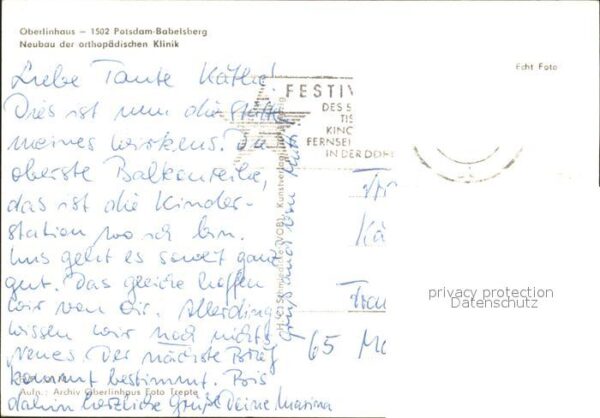 Oberlinhaus – 1502 Potsdam-Babelsberg
Neubau der orthopädischen Klinik
Echt Foto
Liebe Tante Käthe!
Dies ist nun die Stätte
meines Wirkens. Die
oberste Balkonreihe,
das ist die Kinder-
station wo ich bin.
Uns geht es soweit ganz
gut. Das gleiche hoffen
wir von Dir. Allerdings
wissen wir noch nichts
Neues. Der nächste Brief
kommt bestimmt. Bis
dahin herzliche Grüße Deine Marina
Gruß auch von Mutti
FESTIV
DES S
TIS
KINO
FERNSE
IN DER DDR
Kä
Frau
65 Ma
privacy protection
Datenschutz
Aufn.: Archiv Oberlinhaus Foto Trepte